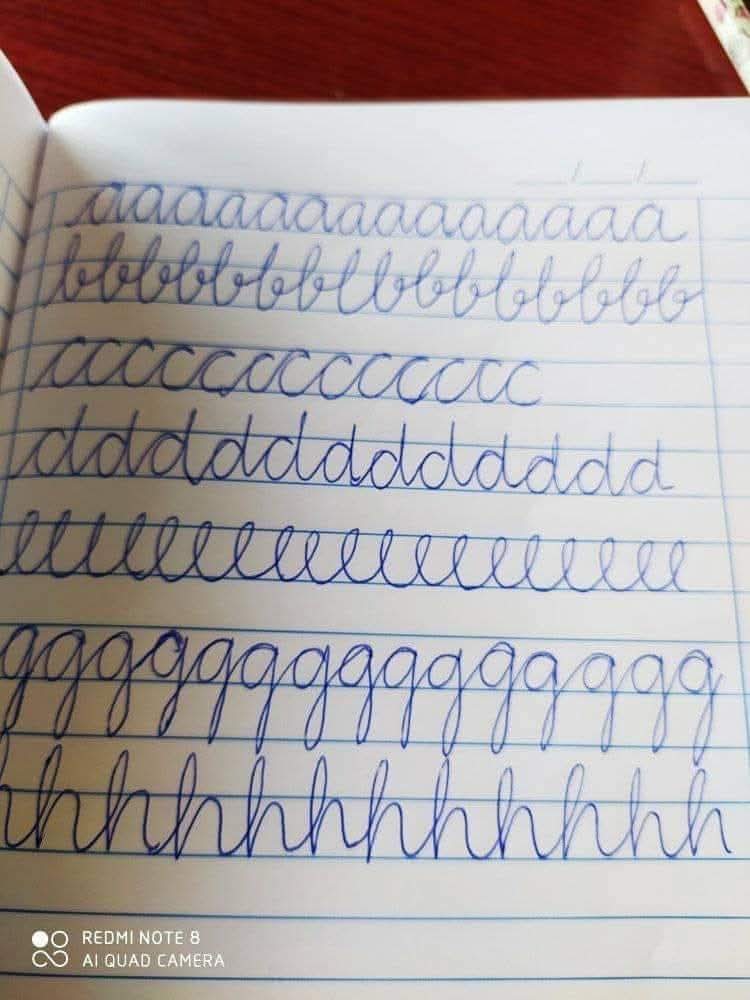 aaaaaaaaaaaaaaa
bbbbbbblbbbbbbbb
cccccccccccccc
dddddddddddd
eeeeeeeeeeeeeeeeee
ggggggggggggggg
hhhhhhhhhhhh
REDMI NOTE 8
AI QUAD CAMERA